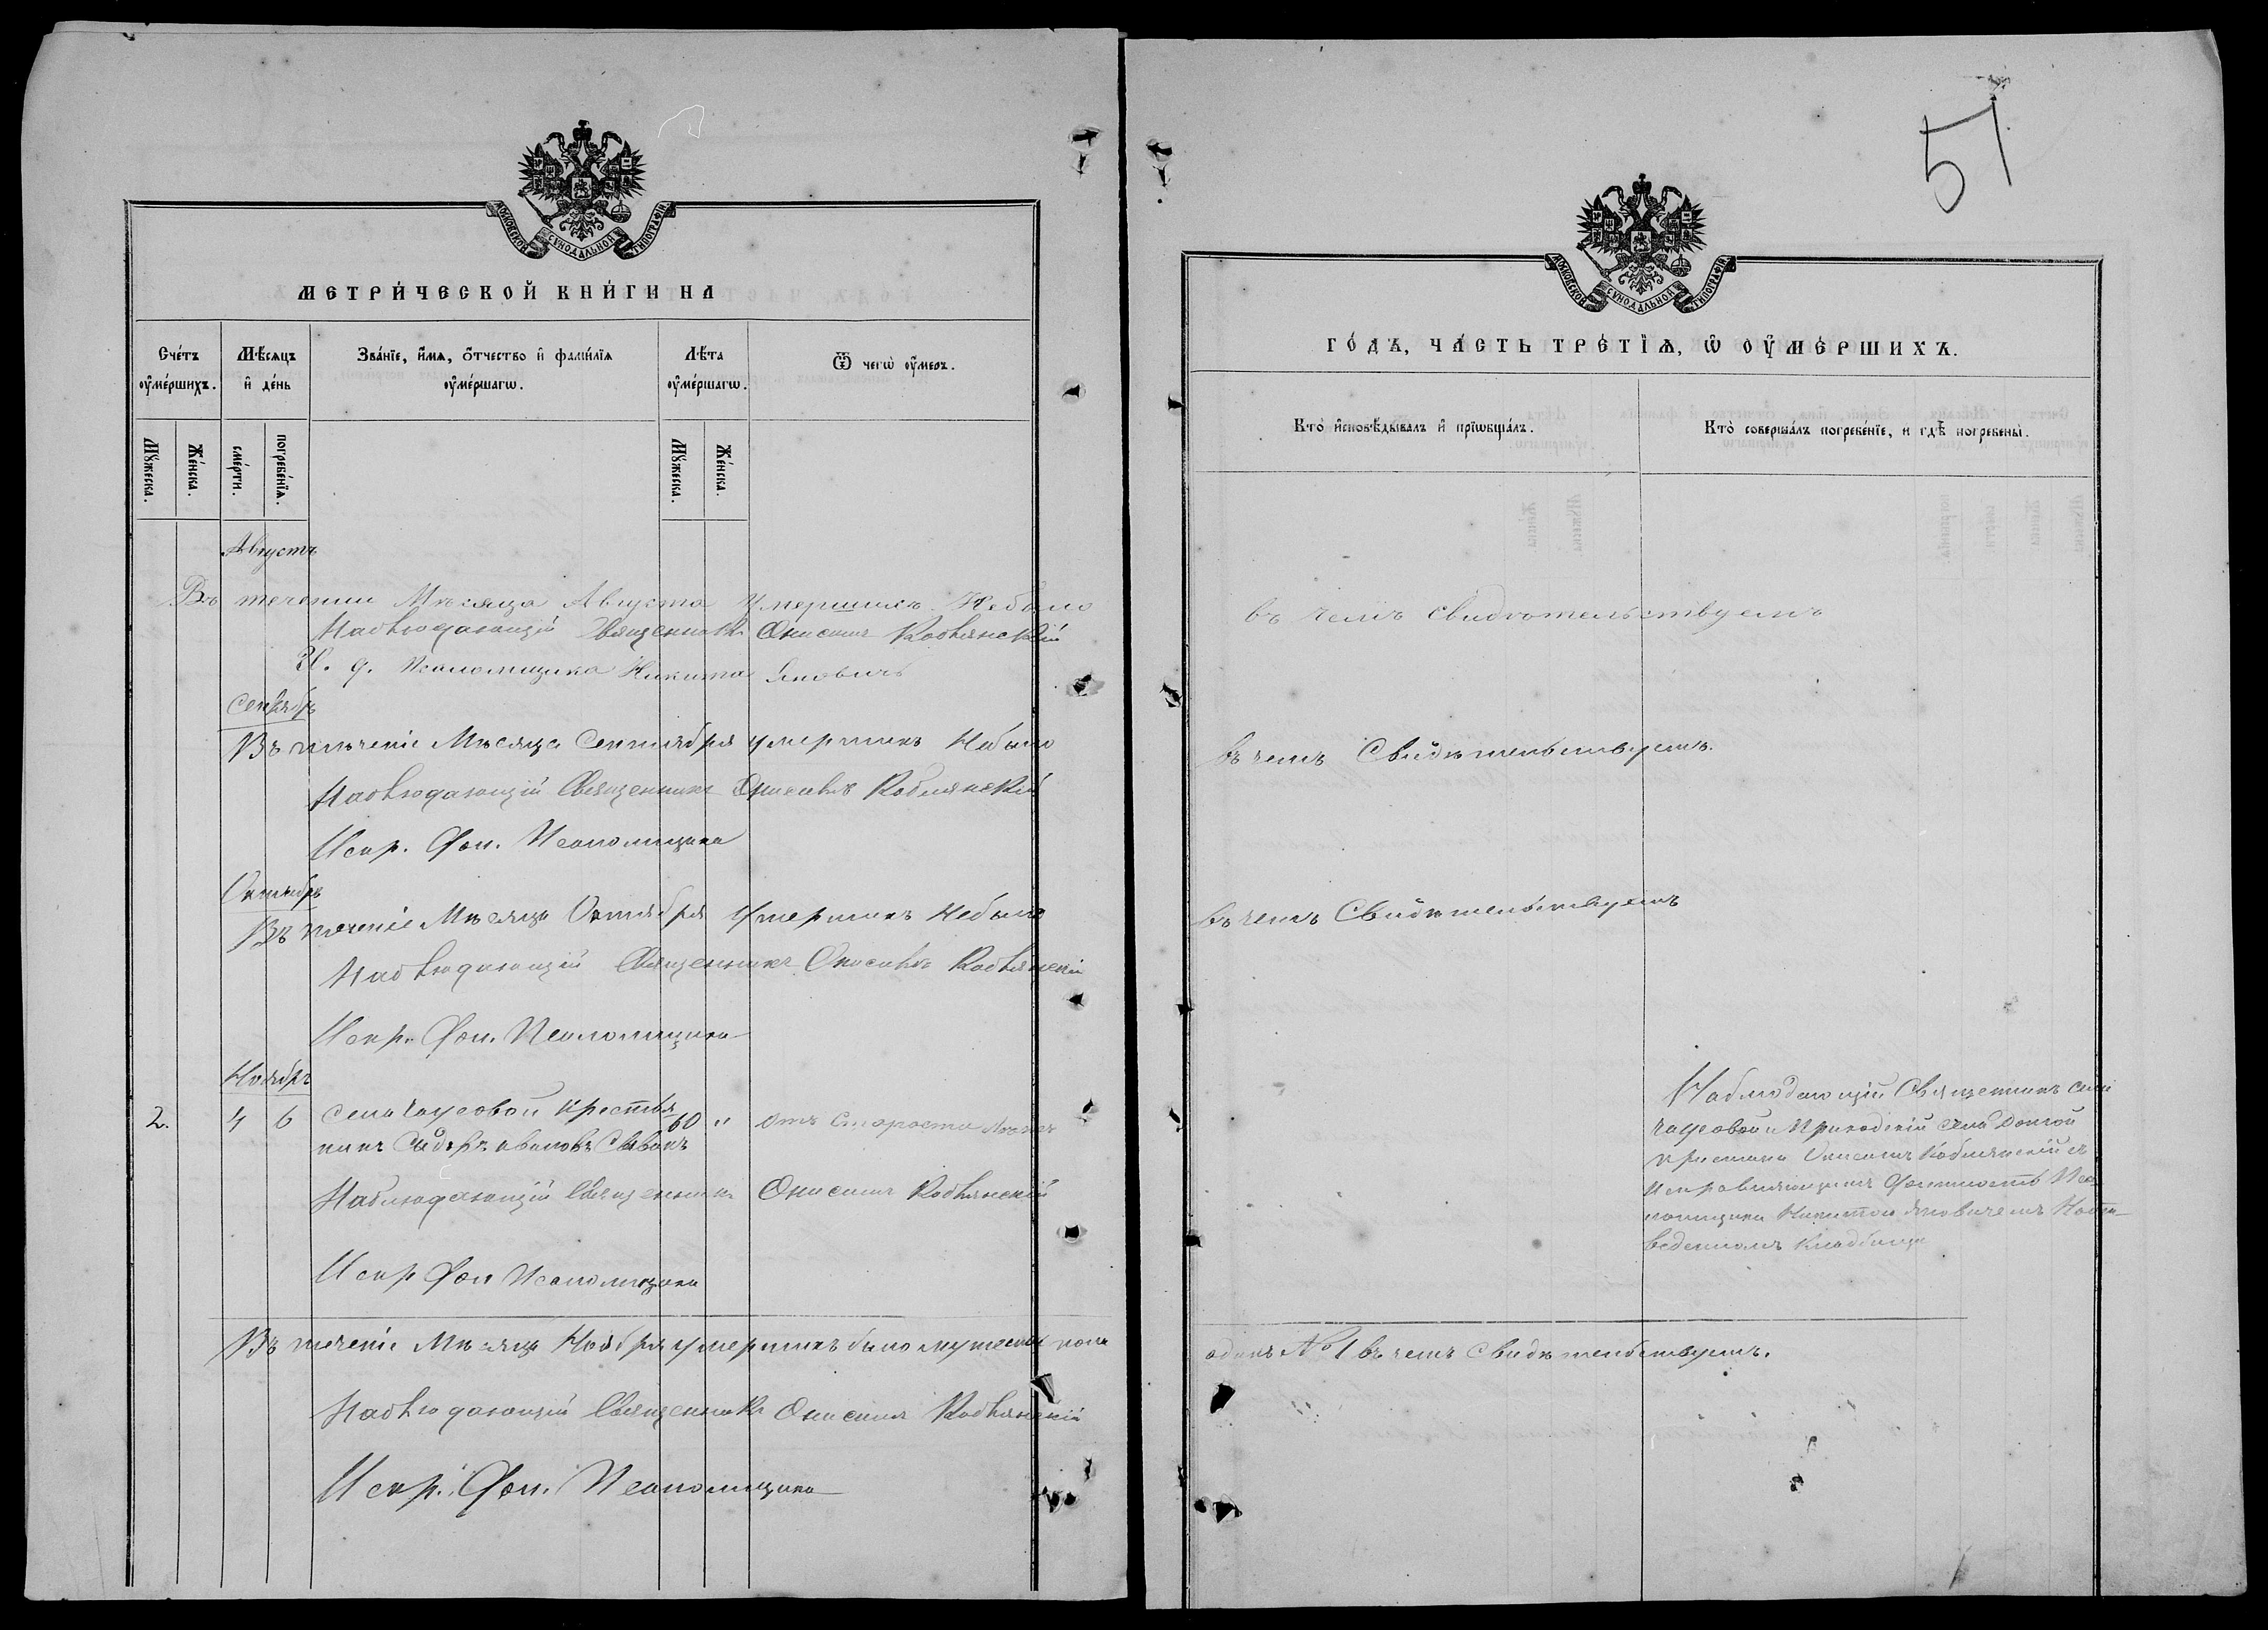 51
МОСКОВСКОЙ СѴНОДАЛЬНОЙ ТИПОГРАФІИ
МЕТРИ́ЧЕСКОЙ КНИ́ГИ НА
Сче́тъ оу҆ме́ршихъ.
Мѣ́сяцъ и҆ де́нь
Зва́нїе, и҆́мя, ѻ҆́тчество и҆ фами́лїя оу҆ме́ршагѡ.
Лѣ́та оу҆ме́ршагѡ.
Ѿ чегѡ̀ оу҆́меръ.
Мꙋ́жеска.
Же́нска.
сме́рти.
погребе́нїѧ.
Мꙋ́жеска.
Же́нска.
Августъ
Въ течении Мѣсяца Августа Умершихъ Небыло
Наблюдающій Священникъ Онисимъ Коблянскій
И. д. Псаломщика Никита Яновичъ
Сентябрь
Въ теченіе Мѣсяца Сентября умершихъ Небыло
Наблюдающій Священникъ Онисимъ Коблянскій
Испр. Дол. Псаломщика
Октябрь
Въ теченіе Мѣсяца Октября Умершихъ Небыло
Наблюдающій Священникъ Онисимъ Коблянскій
Испр. Дол. Псаломщика
Ноябрь
2. 4 6 Села крестья 60 " отъ старости
нинъ
Наблюдающій Священникъ Онисимъ Коблянскій
Испр Дол Псаломщика
Въ теченіе Мѣсяца Ноября умершихъ было мужеска пола
Наблюдающій Священникъ Онисимъ Коблянскій
Испр. Дол. Псаломщика
МОСКОВСКОЙ СѴНОДАЛЬНОЙ ТИПОГРАФІИ
ГО́ДЪ, ЧА́СТЬ ТРЕ́ТЇѦ, Ѡ҆ ОУ҆МЕ́РШИХЪ.
Кто̀ и҆сповѣ́дывалъ и҆ прїѡбща́лъ.
Кто̀ соверша́лъ погребе́нїе, и гдѣ̀ погребены̀.
въ чемъ свидѣтельствуемъ
въ чемъ Свидѣтельствуемъ.
въ чемъ Свидѣтельствуемъ
Наблюдающій Священникъ села
Приходскій села
Онисимъ Коблянскій съ
Исправляющимъ Должность Пса
ломщика Никитою Яновичемъ
кладбище
одинъ №1 въ чемъ Свидѣтельствуемъ.